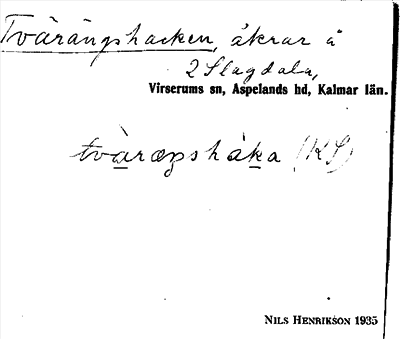 Tvärängshacken, åkrar å
2 Slagdala,
Virserums sn, Aspelands hd, Kalmar län.
tvàræŋsháka (KL)
NILS HENRIKSON 1935